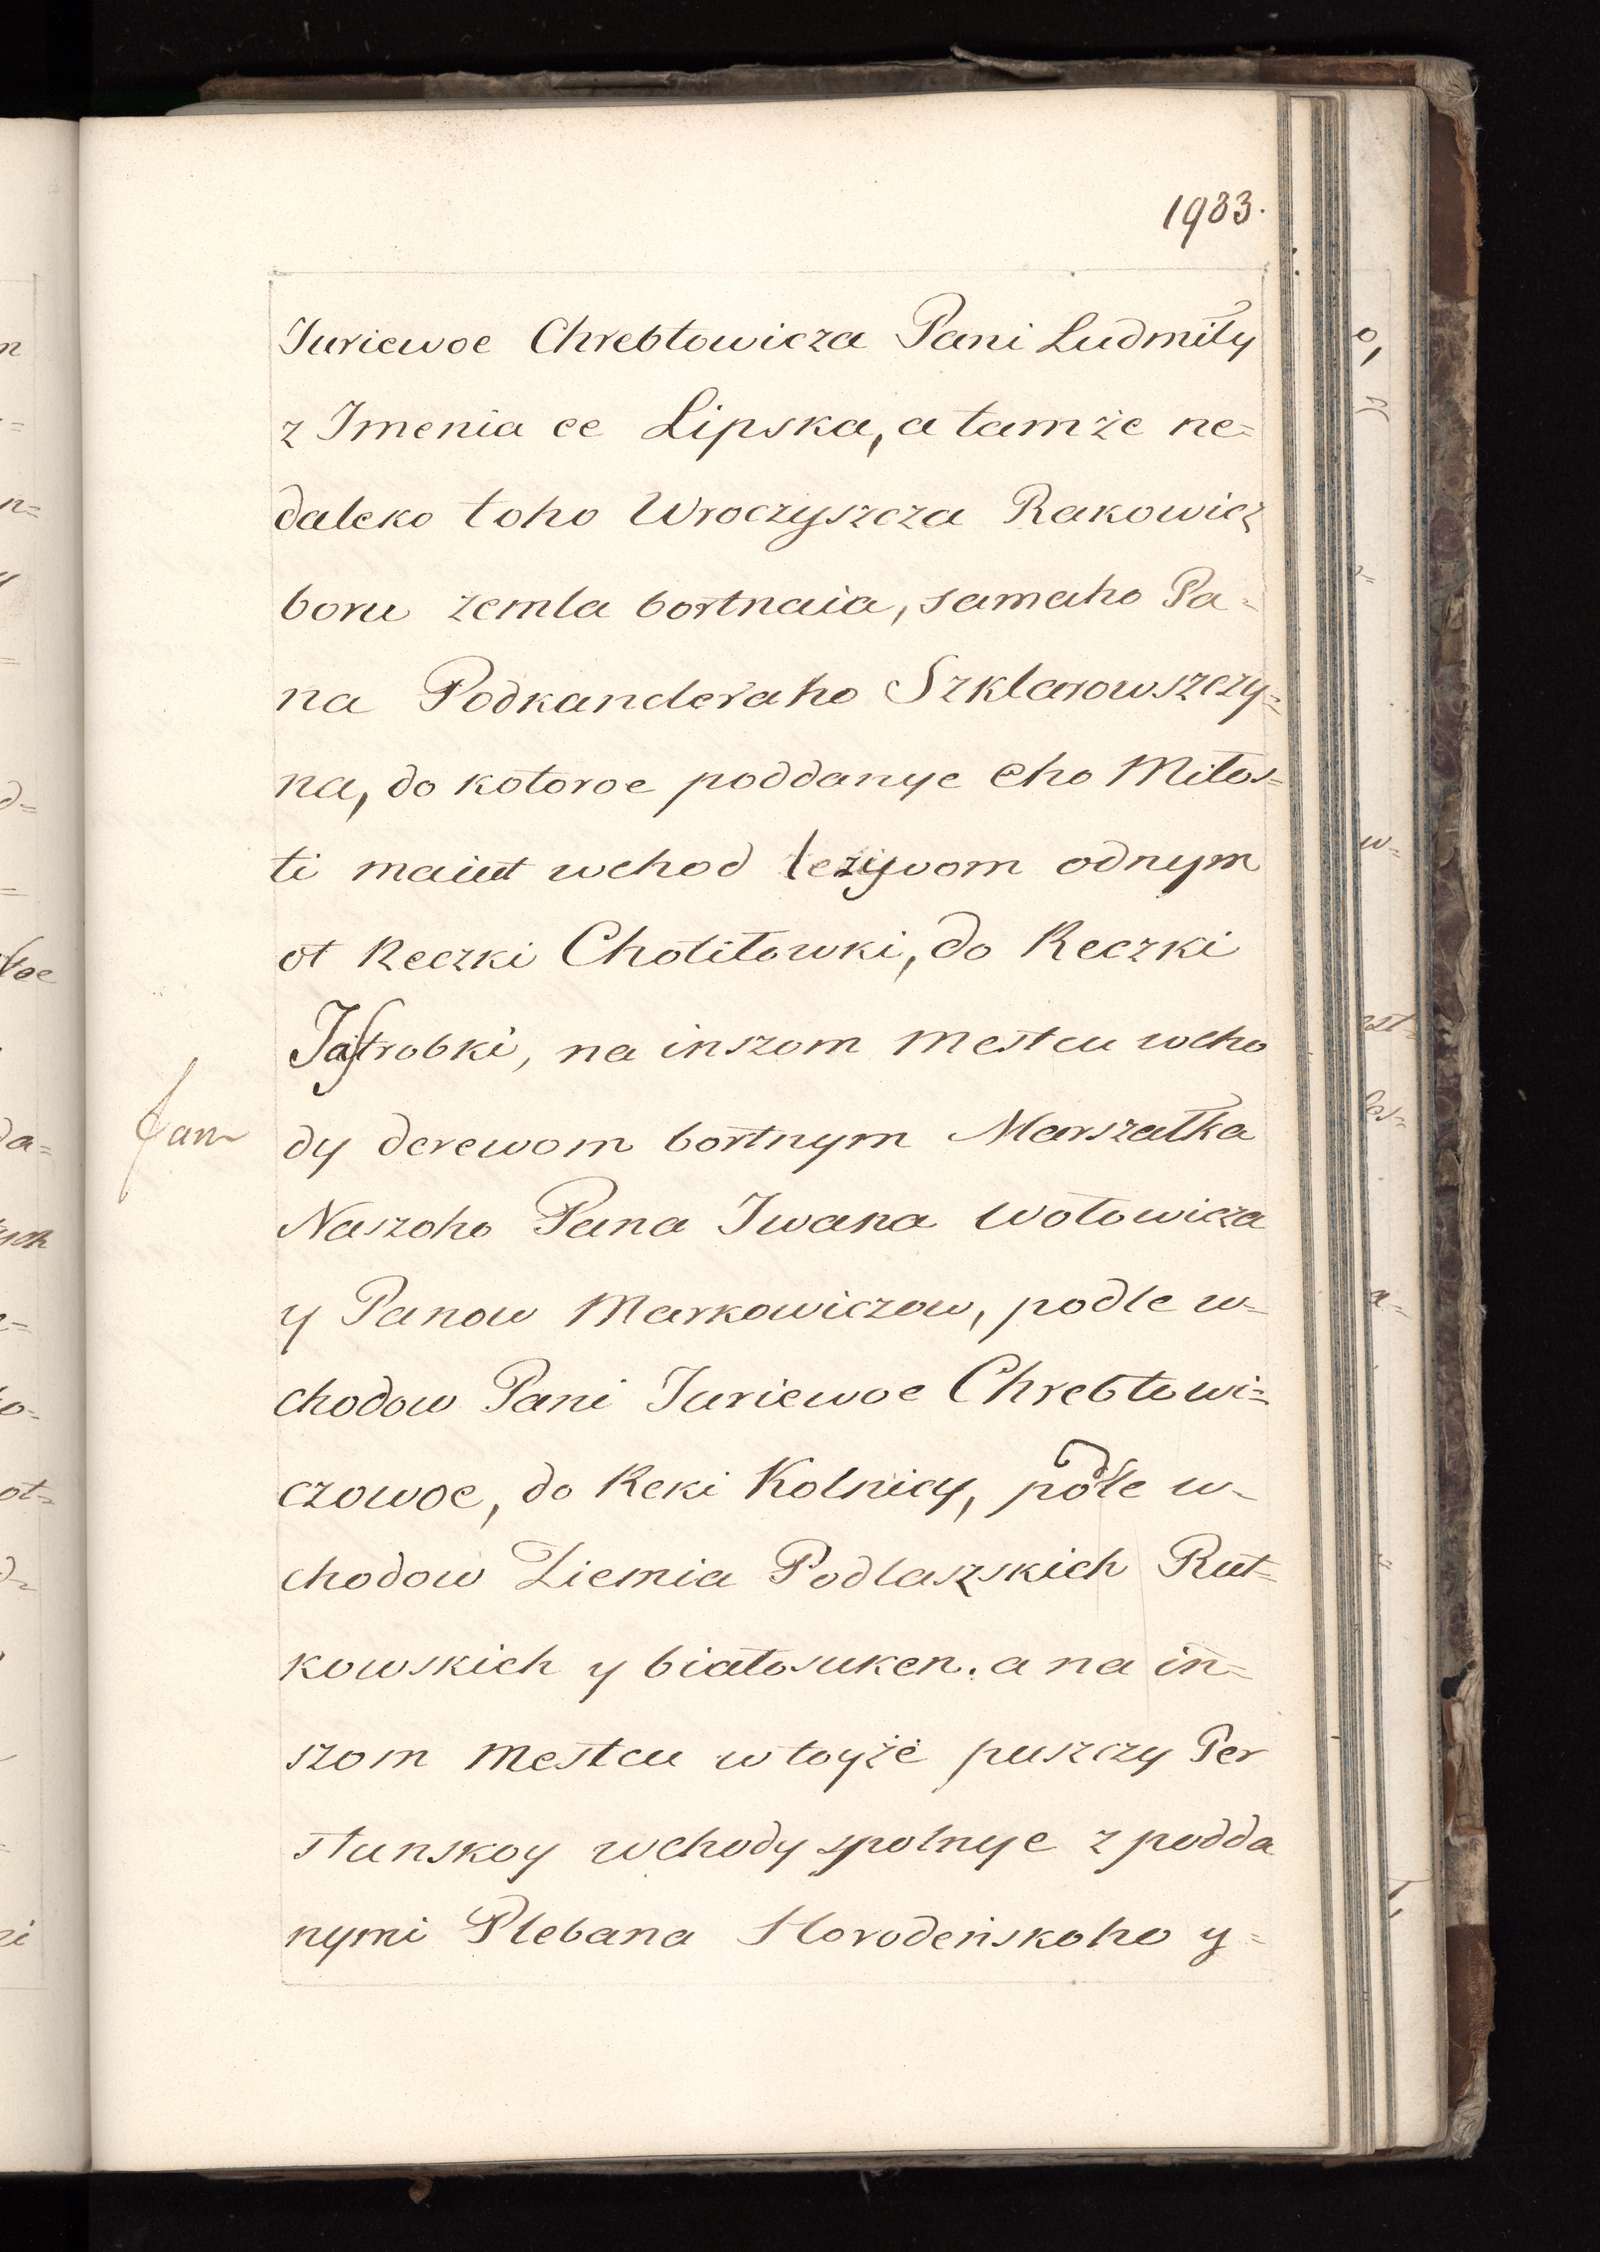 1983.
Juriewoe Chrebtowicza Pani Ludmiły
z Imenia ee Lipska, a tamże ne=
daleko toho Wroczyszcza Rakowicz
boru zemla bortnaia, samaho Pa=
na Podkancleraho Szklarowszczy=
na, do kotoroe poddanye eho Miłos=
ti maiut wchod leziwom odnym
ot Reczki Chotiłowki, do Reczki
Jastrobki, na inszom mestcu wcho
dy derewom bortnym Marszałka
Naszoho Pana Iwana Wołowicza
y Panow Markowiczow, podle w=
chodow Pani Juriewoe Chrebtowi=
czowoe, do Reki Kolnicy, podle w=
chodow Ziemia Podlaszskich Rut=
kowskich y białosuken. a na in=
szom mestcu w toyże puszczy Per
stunskoy wchody spolnye z podda
nymi Plebana Horodeńskoho y=